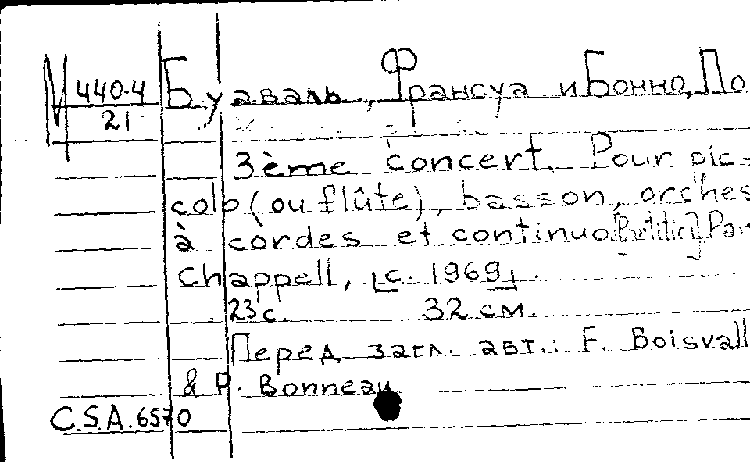 М 440.4 Буаваль, Франсуа и Бонно, По
21
3ème concert. Pour pic-
colo (ou flûte), basson, orches
à cordes et continuo. Par
Chappell, [c. 1969].
23 с. 32 см.
Перед загл. авт.: F. Boisvall
& P. Bonneau
C.S.A. 6570